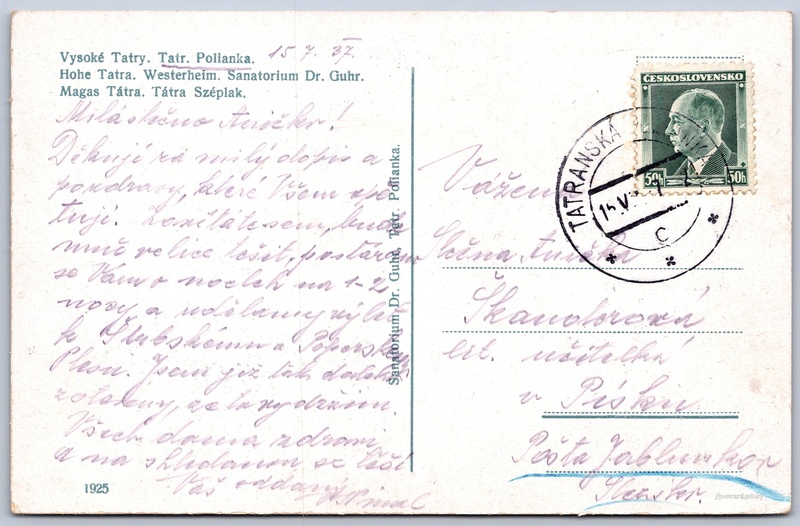 Vysoké Tatry. Tatr. Polianka. 15 7. 37.
Hohe Tatra. Westerheim. Sanatorium Dr. Guhr.
Magas Tátra. Tátra Széplak.
Milá slečno Aničko!
Děkuji za milý dopis a
pozdravy, které Všem opě
tuji.
mně velice těšit, postarám
se Vám o nocleh na 1-2
nocy a uděláme výlet
k Popradsk
Plesu. Jsem již tak daleko
že to vydržím.
Všech doma zdraví
a na shledanou se těší
Váš oddaný
1925
Sanatorium Dr. Guhr, Tatr. Polianka.
ČESKOSLOVENSKO
50h 50h
TATRANSKÁ
15.V
C
Vážená
Slečna Anička
Škandorová
lit. učitelka
v Písku
Pošta Jablunkov
Slezsko.